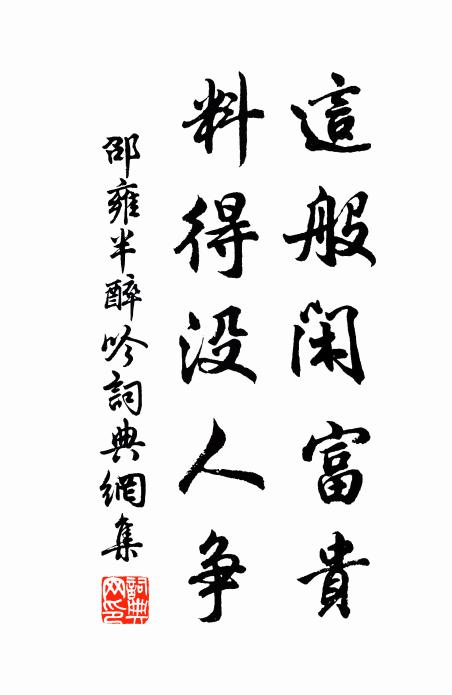 這般閑富貴
料得没人争
邵雍半醉吟詞典網集
詞典網印